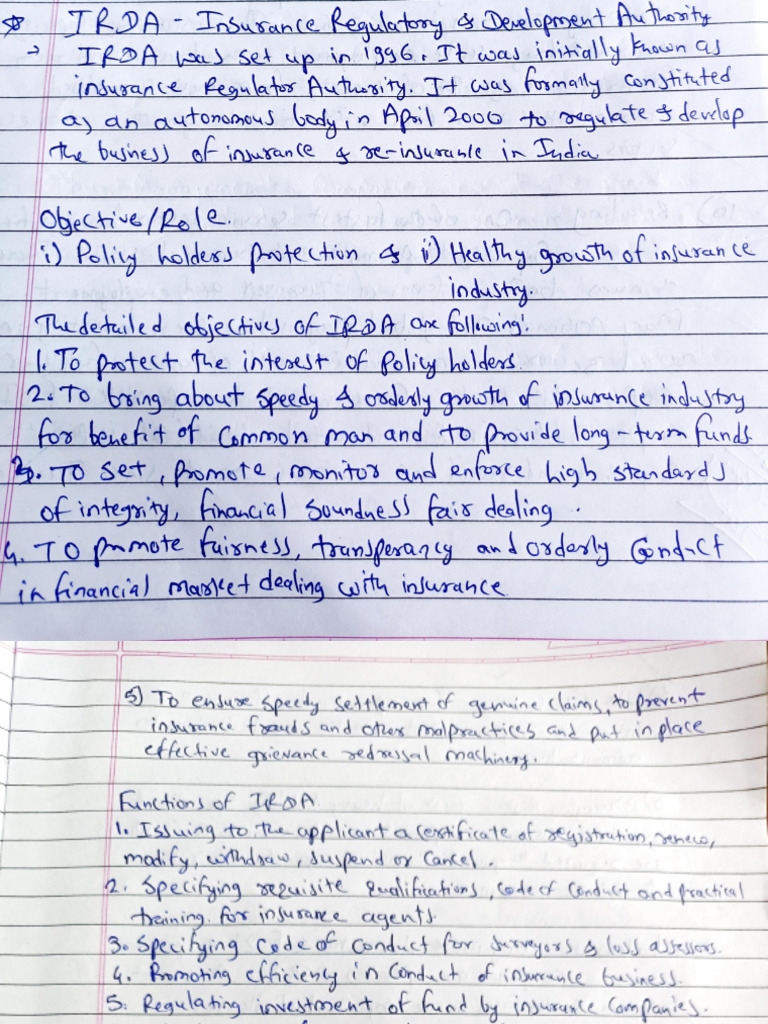 IRDA - Insurance Regulatory & Development Authority
→ IRDA was set up in 1996. It was initially known as
insurance Regulator Authority. It was formally constituted
as an autonomous body, in April 2000 to regulate & develop
the business of insurance & re-insurance in India
Objective/Role.
i) Policy holders protection & ii) Healthy growth of insurance
industry.
The detailed objectives of IRDA are following:
1. To protect the interest of Policy holders.
2. To bring about speedy & orderly growth of insurance industry
for benefit of Common man and to provide long-term funds.
3. To set, promote, monitor and enforce high standards
of integrity, financial soundness fair dealing.
4. To promote fairness, transperancy and orderly Conduct
in financial market dealing with insurance
5) To ensure speedy settlement of genuine claims, to prevent
insurance frauds and other malpractices and put in place
effective grievance redressal machinery.
Functions of IRDA
1. Issuing to the applicant a certificate of registration, renew,
modify, withdraw, suspend or Cancel.
2. Specifying requisite qualifications, code of Conduct and practical
training. for insurance agents.
3. Specifying Code of Conduct for surveyors & loss assessors.
4. Promoting efficiency in Conduct of insurance business.
5. Regulating investment of fund by insurance Companies.